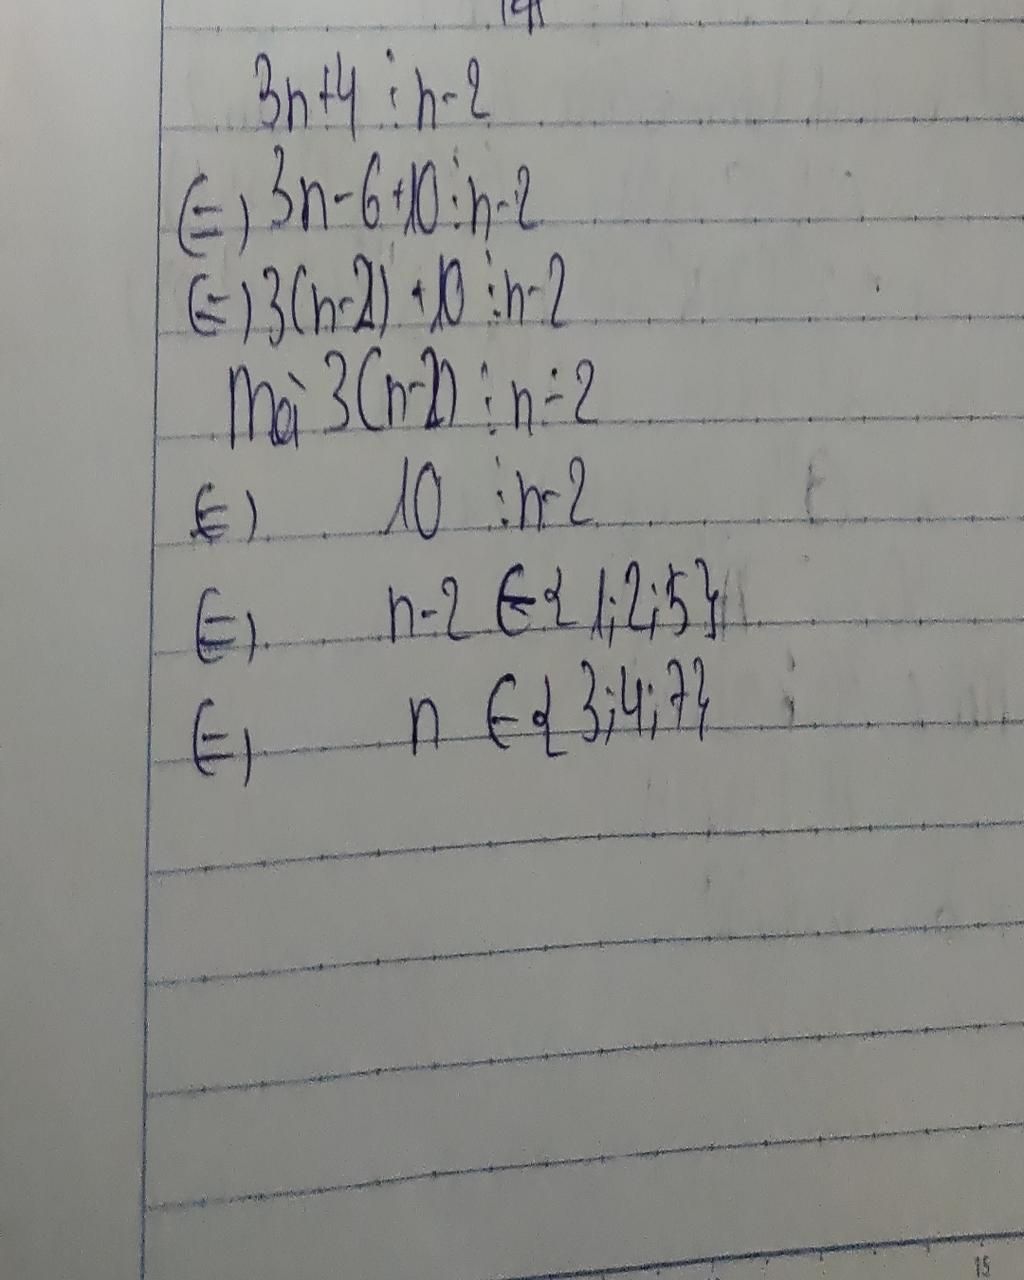 3n+4 ⋮ n-2
⇔ 3n-6+10 ⋮ n-2
⇔ 3(n-2) +10 ⋮ n-2
Mà 3(n-2) ⋮ n-2
⇔ 10 ⋮ n-2
⇔ n-2 ∈ { 1;2;5}
⇔ n ∈ { 3;4;7}
15